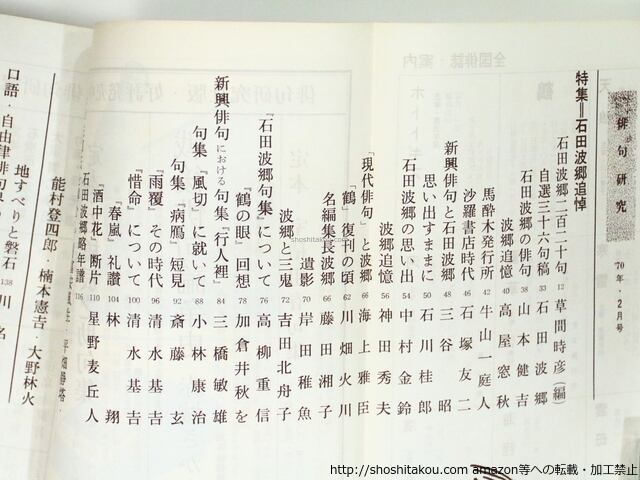 俳句研究
70年・2月号
特集＝石田波郷追悼
石田波郷二百二十句 12 草間時彦(編)
自選三十六句稿 33 石田波郷
石田波郷の俳句 38 山本健吉
波郷追憶 40 高屋窓秋
馬酔木発行所 42 牛山一庭人
沙羅書店時代 46 石塚友二
新興俳句と石田波郷 48 三谷昭
思い出すままに 50 石川桂郎
石田波郷の思い出 54 中村金鈴
波郷追憶 56 神田秀夫
「現代俳句」と波郷 66 海上雅臣
「鶴」復刊の頃 62 川畑火川
名編集長波郷 66 藤田湘子
遺影 70 岸田稚魚
波郷と三鬼 72 吉田北舟子
『石田波郷句集』について 76 高柳重信
『鶴の眼』回想 78 加倉井秋を
新興俳句における句集『行人裡』 84 三橋敏雄
句集『風切』に就いて 88 小林康治
句集『病鴈』短見 92 斎藤玄
『雨覆』その時代 96 清水基吉
『惜命』について 100 清水基吉
『春嵐』礼讃 104 林翔
『酒中花』断片 110 星野麦丘人
石田波郷略年譜 116
能村登四郎・楠本憲吉・大野林火
地すべりと磐石 138 川名
口語・自由律俳句
全国俳誌・案内
http://shoshitakou.com amazon等への転載・加工禁止